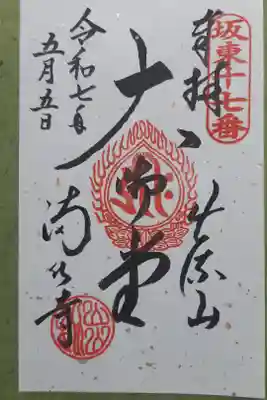 坂東十七番
奉拝
出流山
大御堂
令和七年
五月五日
満願寺